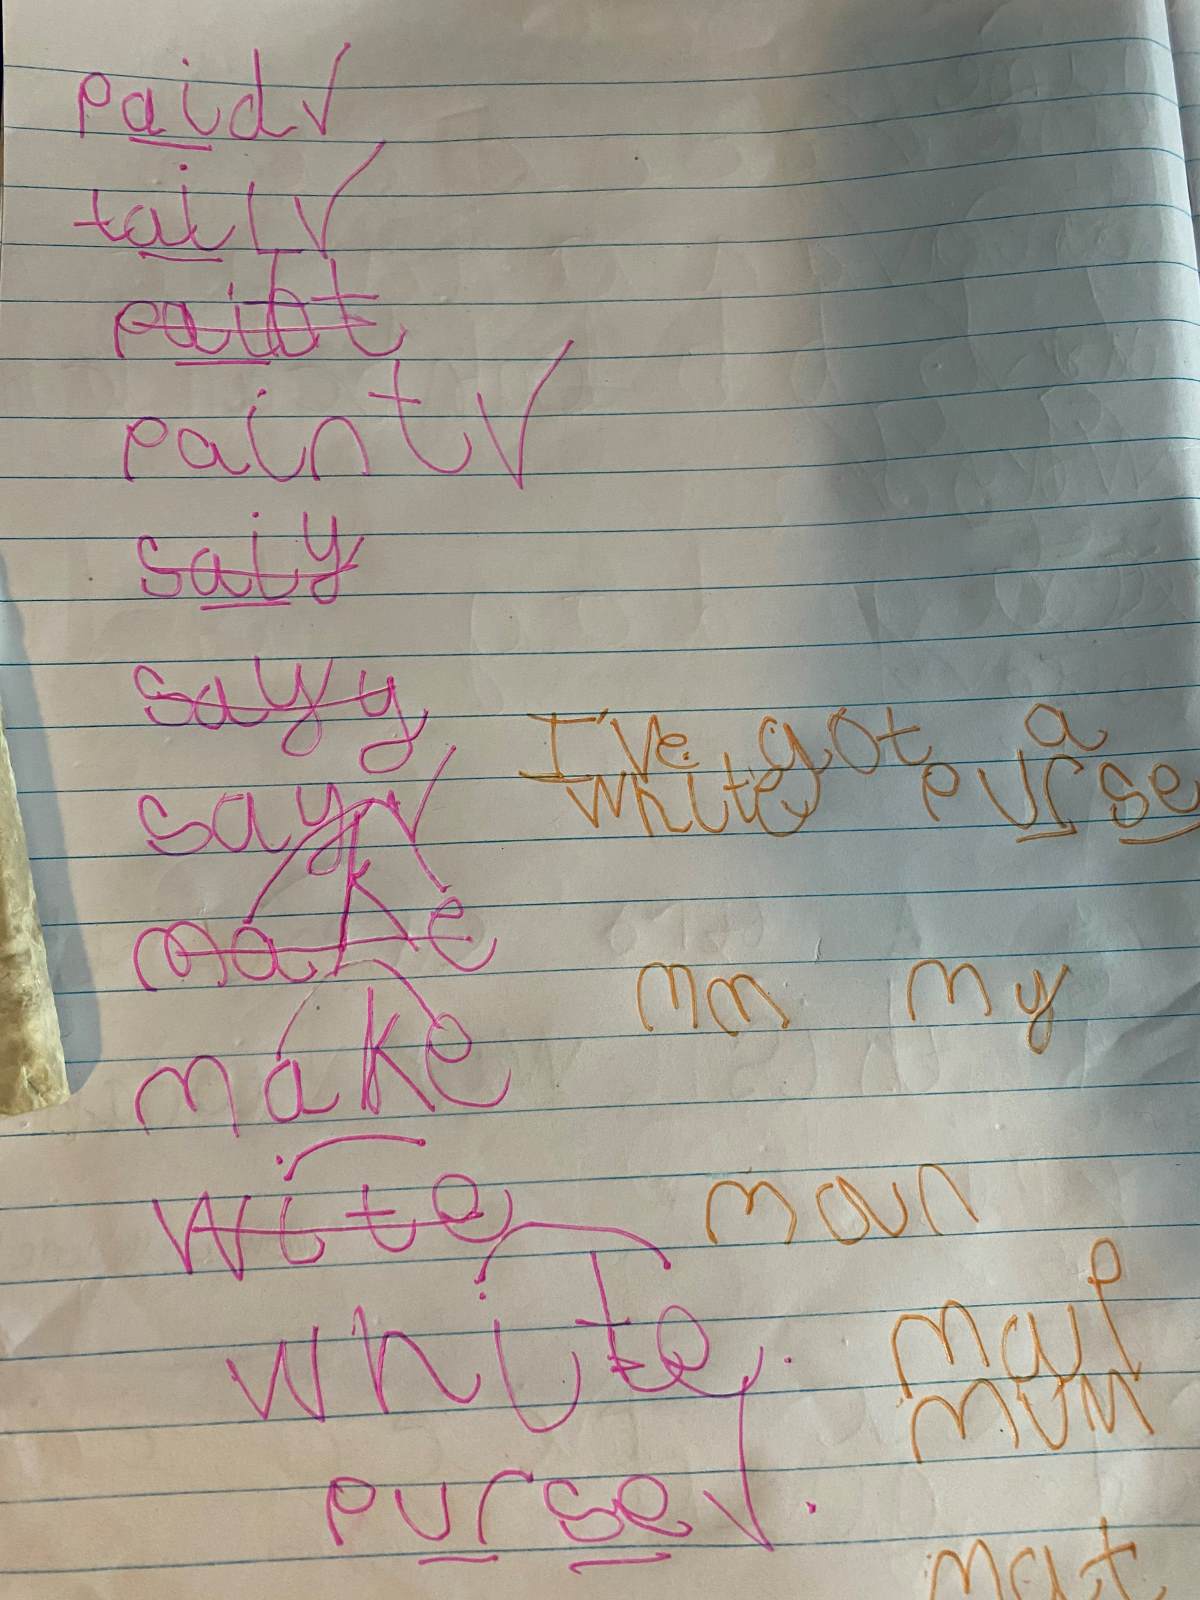 paid ✓
tail ✓
paint ✓
saiy
sayy
say ✓
I've got a
white purse
make
mm my
make
wite
man
white.
map
mum
purse ✓.
mat